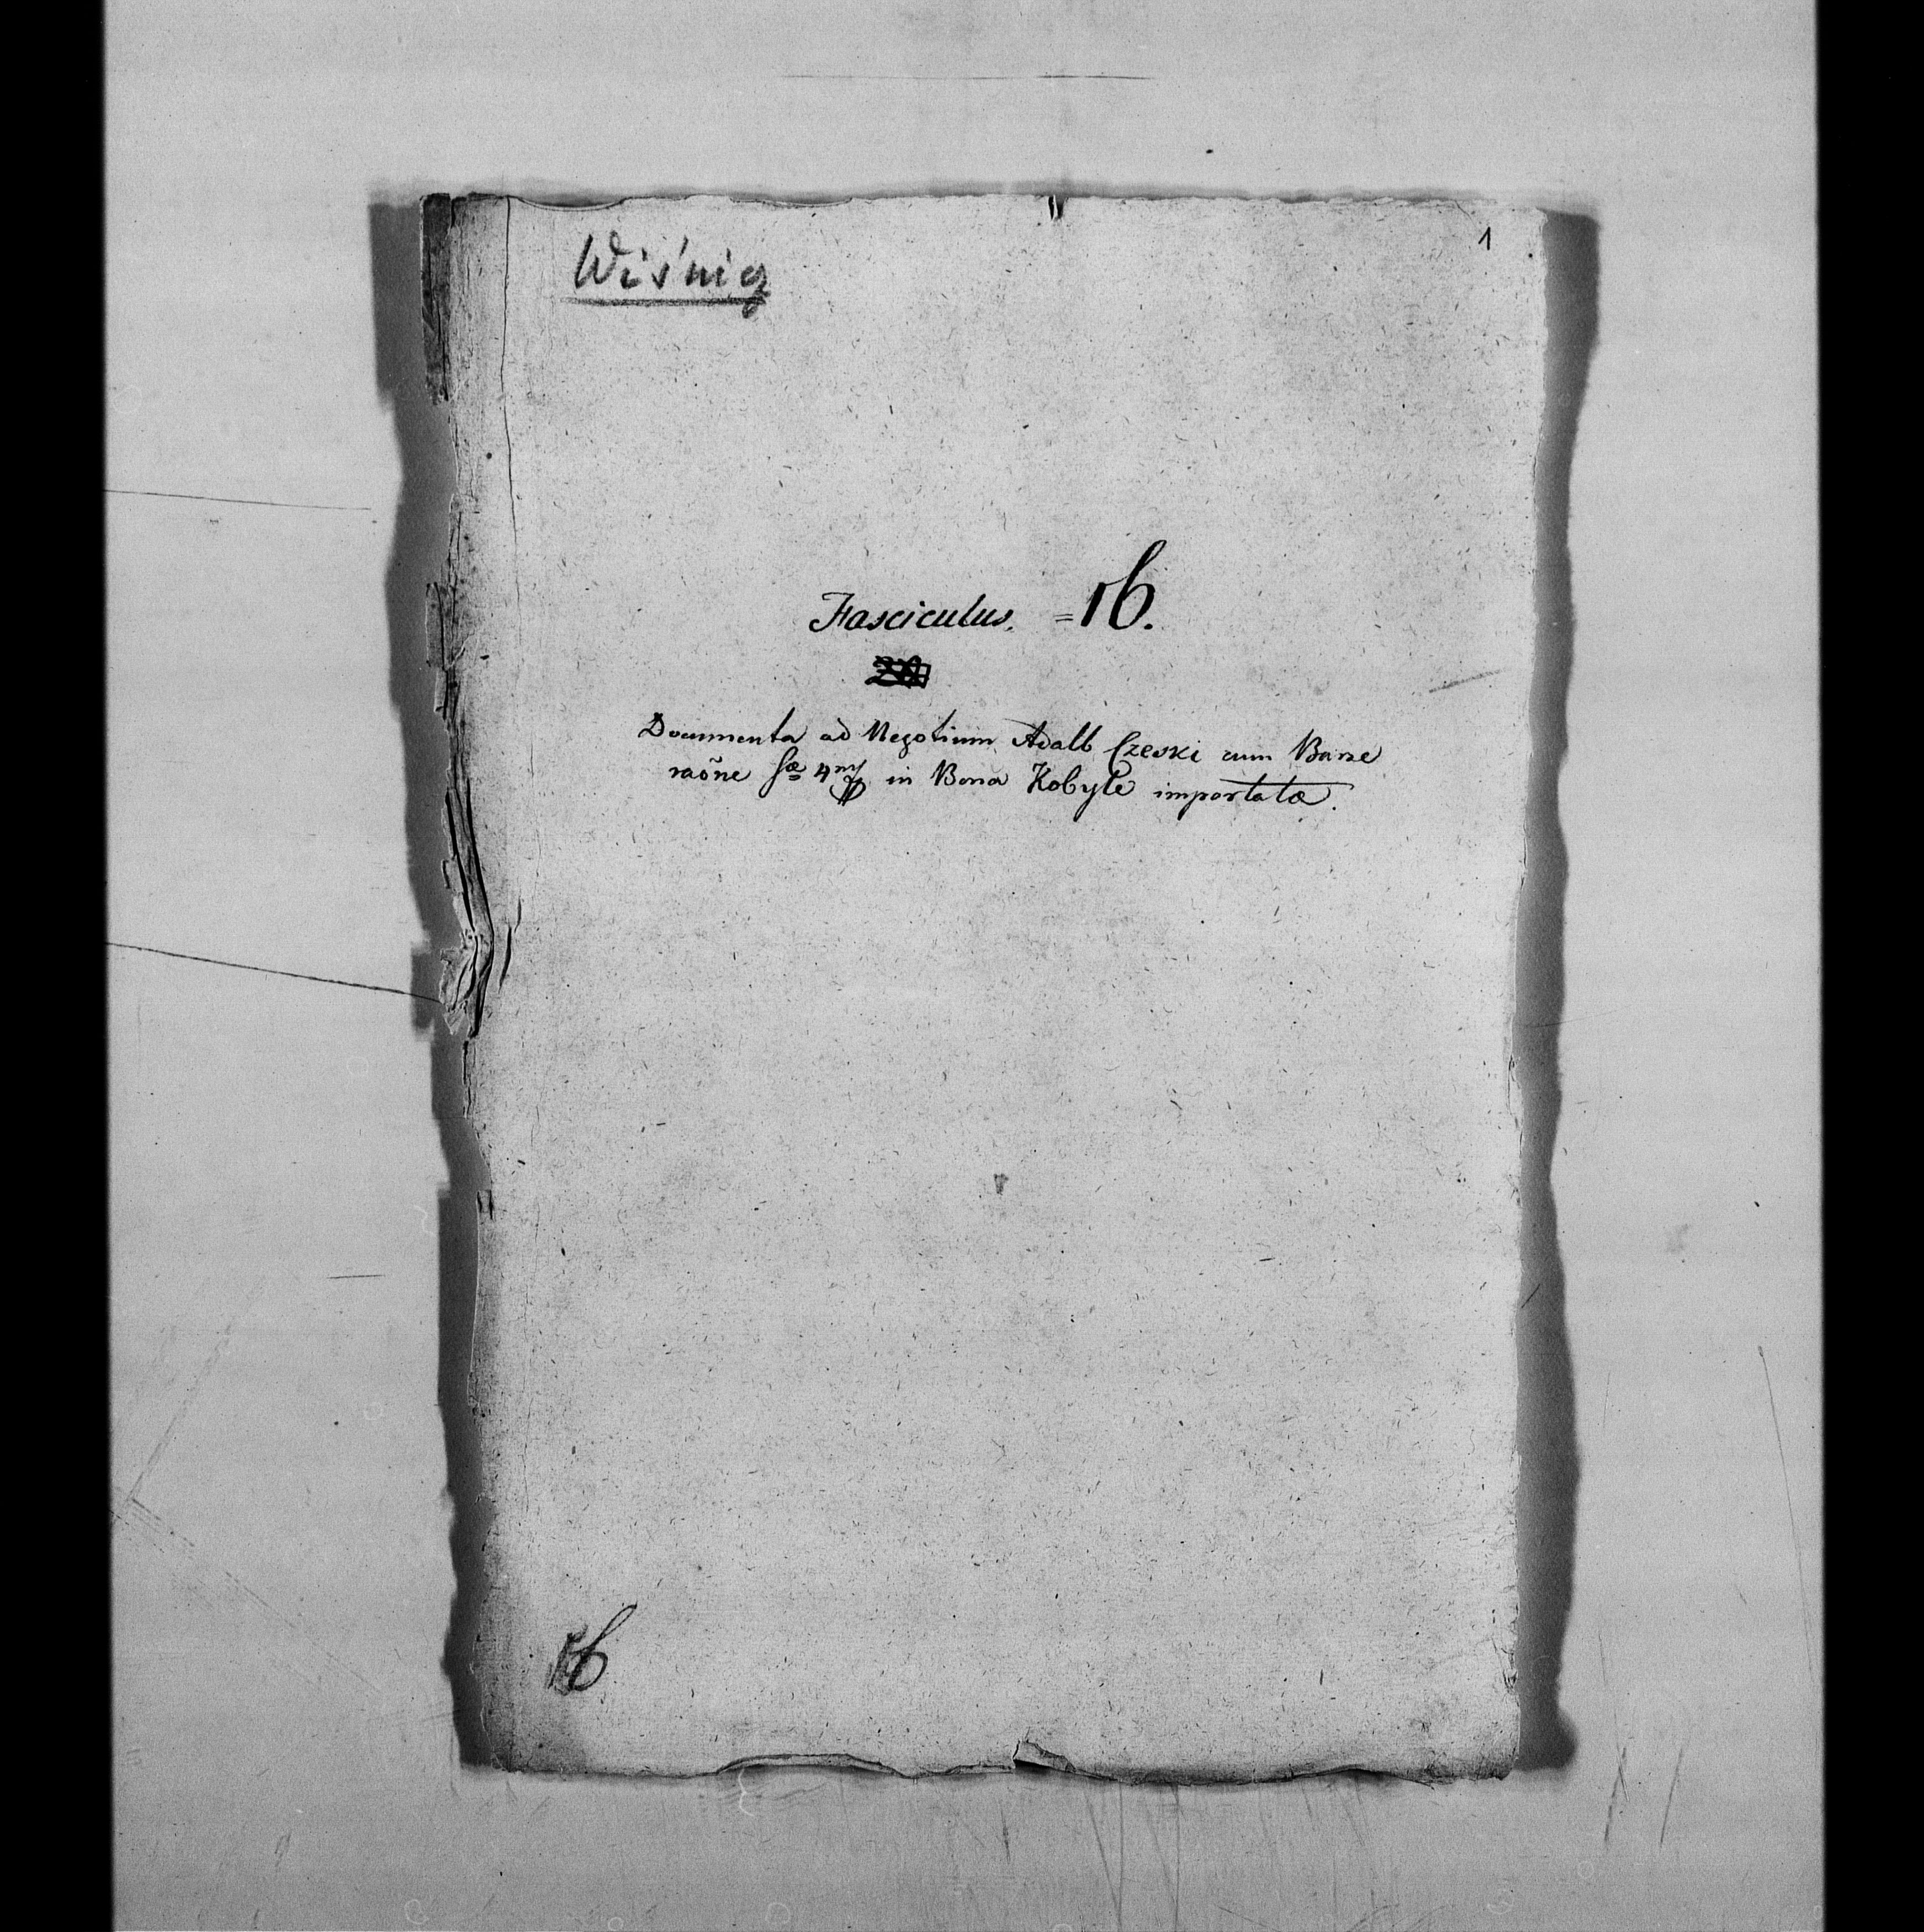 1
Wiśnicz
Fasciculus. = 16.
Documenta ad Negotium Adalb Czeski cum Barze
raône in Bona Kobyle importatæ.
16